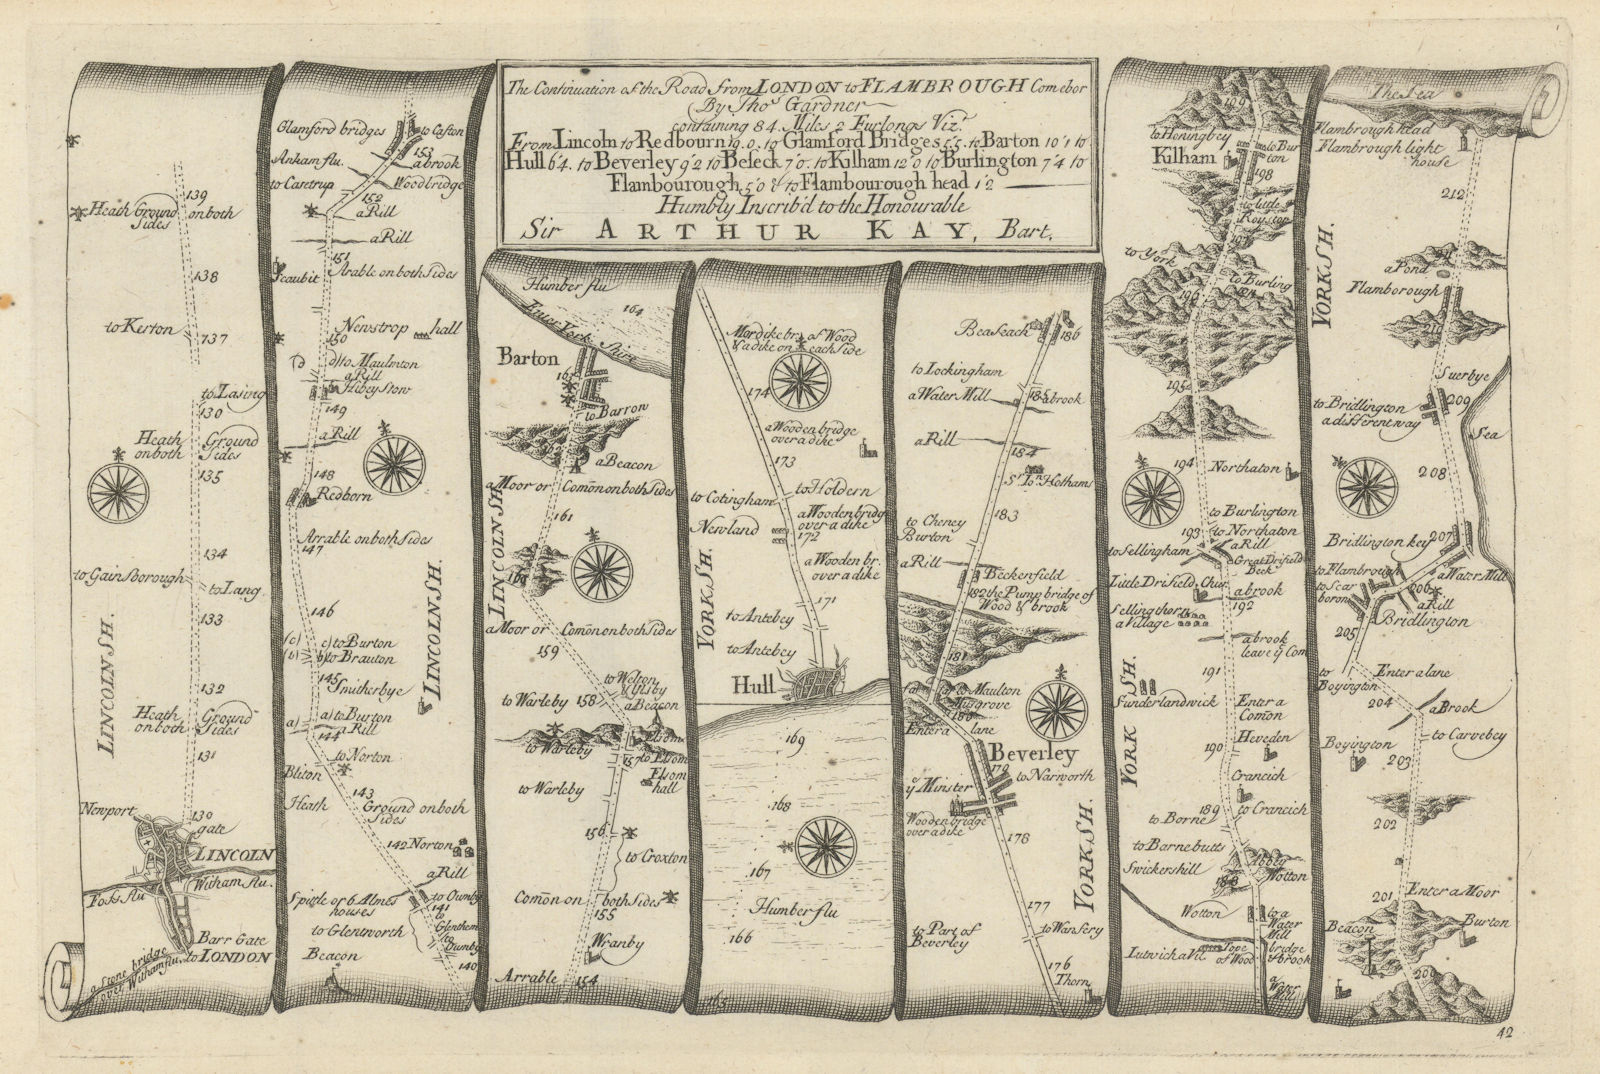 The Continuation of the Road from LONDON to FLAMBROUGH Com ebor
By Tho.s Gardner
containing 84. Miles 2 Furlongs Viz.t
From Lincoln to Redbourn 19.0. to Glamford Bridges 5'5. to Barton 10'1 to
Hull 6'4. to Beverley 9'2 to Beseck 7'0. to Kilham 12'0 to Burlington 7'4 to
Flambourough 5'0 & to Flambourough head 1'2
Humbly Inscrib'd to the Honourable
Sir ARTHUR KAY, Bart.
139
Heath Ground on both
Sides
138
to Kerton
137
to Lasing
130
Heath Ground
on both Sides
135
134
to Gainsborough
to Lang
133
LINCOLNSH.
132
Heath Ground
on both Sides
131
Newport
130
gate
LINCOLN
Witham flu.
Foss flu
Barr Gate
to LONDON
a Stone bridge
over Witham flu.
Glamford bridges
to Caston
153
Ankam flu.
a brook
to Castrup
Wood bridge
152
a Rill
a Rill
151
Scaubit
Arable on both Sides
Newstrop hall
150
d) to Maulmton
a Rill
Hibey Stow
149
a Rill
148
Redborn
Arrable on both Sides
147
LINCOLNSH.
146
(c) c) to Burton
(b) b) to Brauton
145
Snitherbye
a) a) to Burton
a Rill
144
to Norton
Bliton
143
Heath Ground on both
Sides
142 Norton
a Rill
Spittle or 6 Almes
houses
to Ownby
141
to Glentworth
to
Glenthem
to
Ownby
Beacon
140
Humber flu
164
Enter York Shire
Barton
to Barrow
a Beacon
a Moor or Comõn on both Sides
LINCOLNSH.
161
160
a Moor or Comõn on both Sides
159
to Welton
& Ulsby
to Warleby 158
a Beacon
Elsom
to Warleby
157 to Elsom
Elsom
hall
to Warleby
156
to Croxton
Comõn on both Sides
155
Wranby
Arrable 154
Mordike br. of Wood
& a dike on each Side
174
a Wooden bridge
over a dike
173
to Cotingham
to Holdern
Newland
a Wooden bridg
over a dike
172
a Wooden br.
over a dike
YORKSH.
171
to Antebey
to Antebey
Hull
169
168
167
Humber flu
166
165
Beaseack
186
to Lockingham
a Water Mill
185
a brook
a Rill
184
St. Jon. Hothams
183
to Cheney
Burton
a Rill
Beckenfield
182 the Pump bridge of
Wood & brook
181
(a) (a) to Maulton
Musgrove
180
Enter a lane
Beverley
179
to Narworth
ye Minster
Wooden bridge
over a dike
178
YORKSH.
177
to Part of
Beverley
to Wansery
176
Thorn
199
to Honingbey
Kilham
to Bur
ton
198
to little
Royston
197
to York
to Burling
ton
196
195
194
Northaton
to Burlington
193
to Northaton
to Sellingham
a Rill
Great Drifield
Beck
Little Drifield Chur.
a brook
192
Sellingthorn
a Village
a brook
leave ye Com
191
YORK SH.
Sunderlandwick
Enter a
Comon
190
Heveden
Crancich
189
to Crancich
to Borne
to Barnebutts
Swickershill
Abby
Wotton
188
Wotton
to a
Water
Mill
bridge
& brook
Lutwick a Vil
Tope
of Wood
a
Water
Mill
The Sea
Flambrough head
Flambrough light
house
212
YORKSH.
211
a Pond
Flamborough
210
Suerbye
to Bridlington
a different way
209
Sea
208
Bridlington key
207
to Flambrough
a Water Mill
to Scar
boron
206
a Rill
Bridlington
205
to
Boyington
Enter a lane
204
a Brook
to Carvebey
Boyington
203
202
201
Enter a Moor
Beacon
Burton
200
42